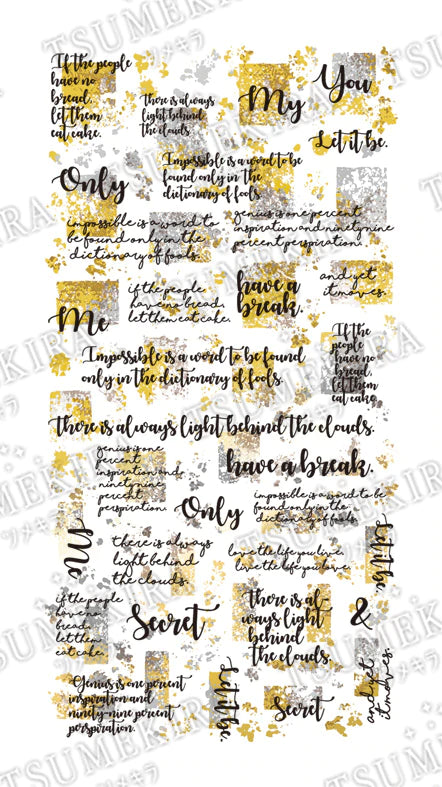 If the people
have no
bread,
let them
eat cake.
There is always
light behind
the clouds.
My
You
Let it be.
Only
Impossible is a word to be
found only in the
dictionary of fools.
impossible is a word to
be found only in the
dictionary of fools.
genius is one percent
inspiration and ninety nine
percent perspiration.
Me
if the people
have no bread,
let them eat cake.
have a
break.
and yet
it moves.
Impossible is a word to be found
only in the dictionary of fools.
If the
people
have no
bread,
let them
eat cake.
There is always light behind the clouds.
genius is one
percent
inspiration and
ninety nine
percent
perspiration.
have a break.
Only
impossible is a word to be
found only in the
dictionary of fools.
Me
there is always
light behind
the clouds.
love the life you live.
live the life you love.
Let it be.
if the people
have no
bread,
let them
eat cake.
Secret
There is al
ways light
behind
the clouds.
&
Genius is one percent
inspiration and
ninety-nine percent
perspiration.
Let it be.
Secret
and yet
it moves.
TSUMEKIRA
ツメキラ